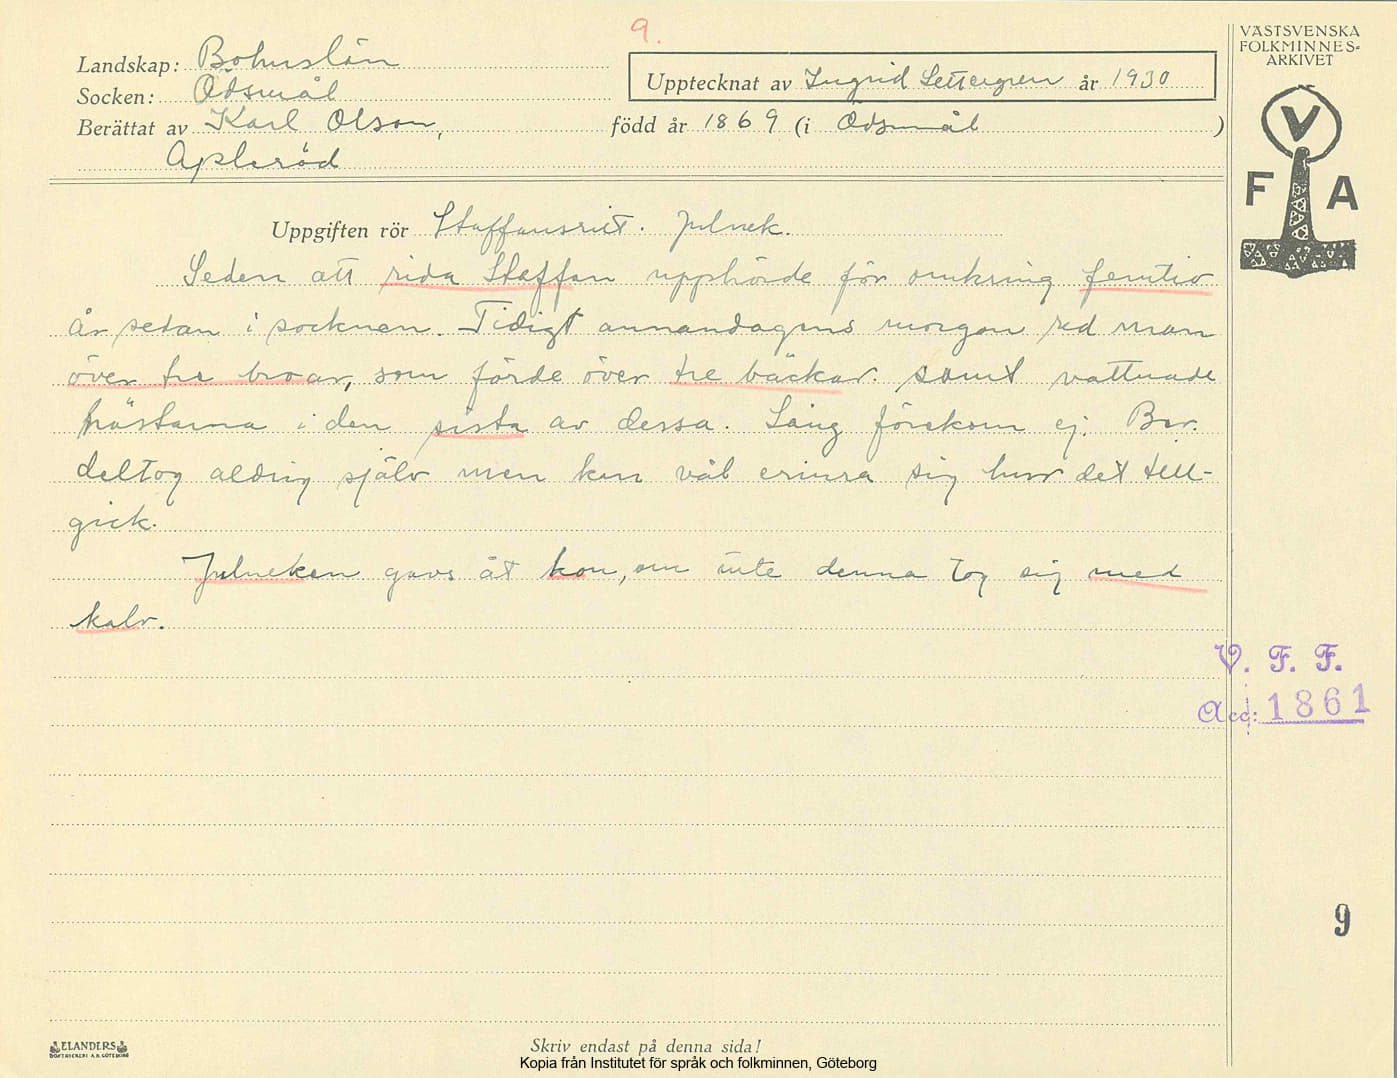 9.
VÄSTSVENSKA
FOLKMINNES-
ARKIVET
Landskap: Bohuslän
Upptecknat av Ingrid Settergren år 1930
Socken: Ödsmål
Berättat av Karl Olson,
född år 1869 (i Ödsmål )
Apleröd
V
F A
Uppgiften rör Staffansritt. Julnek.
Seden att rida Staffan upphörde för omkring femtio
år sedan i socknen. Tidigt annandagens morgon red man
över tre broar, som förde över tre bäckar. samt vattnade
hästarna i den sista av dessa. Sång förekom ej. Ber.
deltog aldrig själv men kan väl erinra sig hur det till-
gick.
Julneken gavs åt kon, om inte denna tog sig med
kalv.
V. F. F.
Acc: 1861
9
ELANDERS
BOKTRYCKERI A.B. GÖTEBORG
Skriv endast på denna sida!
Kopia från Institutet för språk och folkminnen, Göteborg